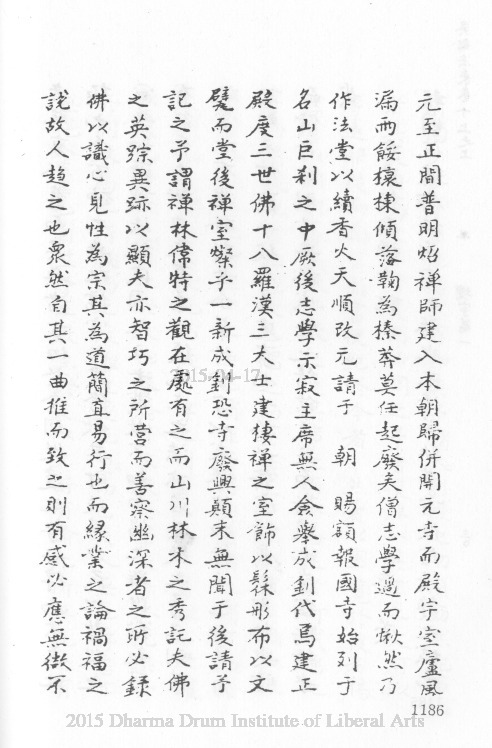 元至正間普明炤禪師建入本朝歸併開元寺而殿宇室廬風
漏雨餒榱棟傾落鞠為榛莽莫任起廢矣僧志學過而愀然乃
作法堂以續香火天順改元請于　朝　賜額報國寺始列于
名山巨剎之中厥後志學示寂主席無人僉舉成釗代焉建正
殿度三世佛十八羅漢三大士建棲禪之室飾以髹彤布以文
甓而堂後禪室燦乎一新成釗恐寺廢興顛末無聞于後請予
記之予謂禪林偉特之觀在處有之而山川林木之秀託夫佛
之英踪異跡以顯夫亦智巧之所營而善察幽深者之所必錄
佛以識心見性為宗其為道簡直易行也而緣業之論禍福之
說故人趨之也衆然自其一曲推而致之則有感必應無微不
2015-04-17
1186
2015 Dharma Drum Institute of Liberal Arts